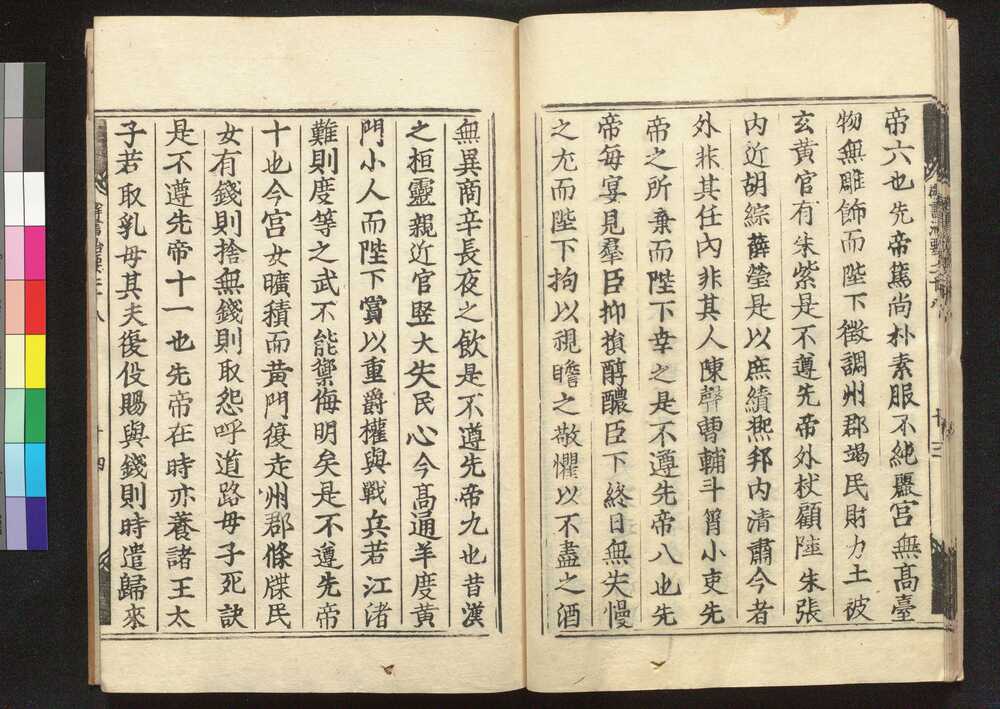 帝六也先帝篤尚朴素服不純麗宮無髙臺
物無雕飾而陛下徵調州郡竭民財力土被
玄黃官有朱紫是不遵先帝外杖顧陸朱張
内近胡綜薛瑩是以庶績熈邦内清肅今者
外非其任内非其人陳聲曹輔斗筲小吏先
帝之所棄而陛下幸之是不遵先帝八也先
帝每宴見羣臣抑損醇醲臣下終日無失慢
之尤而陛下拘以視瞻之敬懼以不盡之酒
無異商辛長夜之飲是不遵先帝九也昔漢
之桓靈親近宦豎大失民心今髙通羊度黃
門小人而陛下賞以重爵權與戰兵若江渚
難則度等之武不能禦侮明矣是不遵先帝
十也今宮女曠積而黃門復走州郡條牒民
女有錢則捨無錢則取怨呼道路母子死訣
是不遵先帝十一也先帝在時亦養諸王太
子若取乳母其夫復役賜與錢則時遣歸來
十四